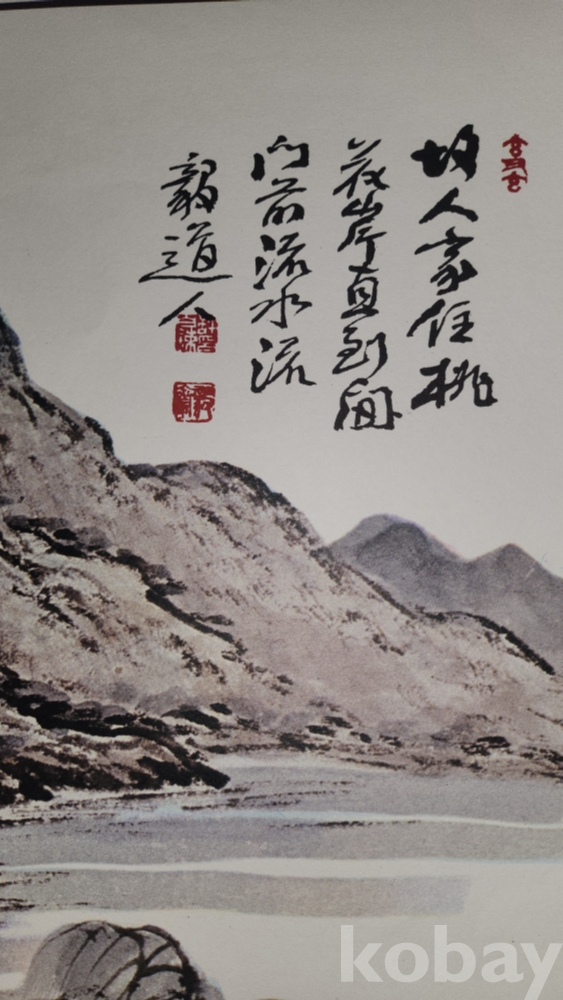 故人家住桃
花岸直到
门前流水流
毅道人
kobay